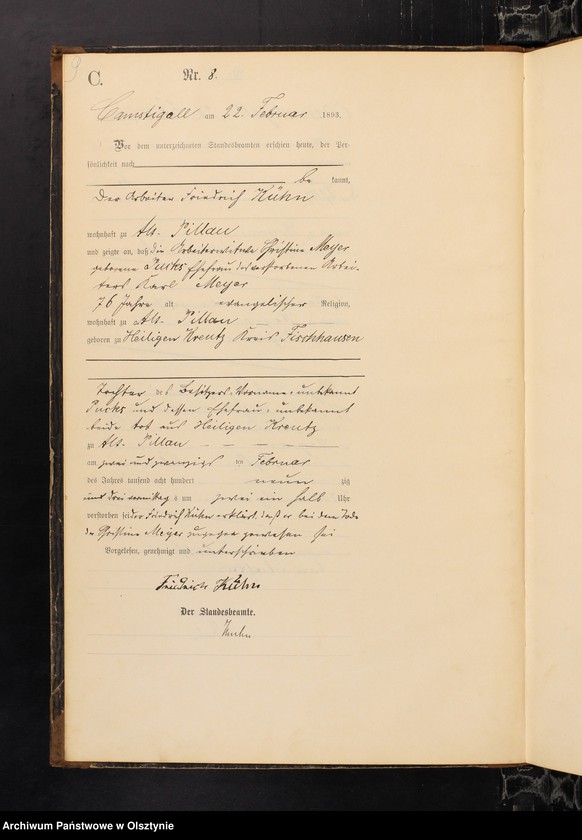 9
C.
Nr. 8.
Camstigall am 22. Februar 1893.
Vor dem unterzeichneten Standesbeamten erschien heute, der Per-
sönlichkeit nach
be kannt,
Der Arbeiter Friedrich Kühn
wohnhaft zu Alt. Pillau
und zeigte an, daß die Arbeiterwitwe Christine Meyer
geborene Purks Ehefrau des verstorbenen Arbei-
ters Karl Meyer
76 Jahre alt evangelischer Religion,
wohnhaft zu Alt. Pillau
geboren zu Heiligen Kreutz Kreis Fischhausen
Tochter des Besitzers, Vorname, unbekannt
Purks und dessen Ehefrau, unbekannt
beide tot aus Heiligen Kreutz
zu Alt. Pillau
am zwei und zwanzigs ten Februar
des Jahres tausend acht hundert neun zig
und drei vormittag s um zwei ein halb Uhr
verstorben sei der Friedrich Kühn erklärt, daß er bei dem Tode
der Christine Meyer zugegen gewesen sei
Vorgelesen, genehmigt und unterschrieben
Friedrich Kühn
Der Standesbeamte.
Archiwum Państwowe w Olsztynie